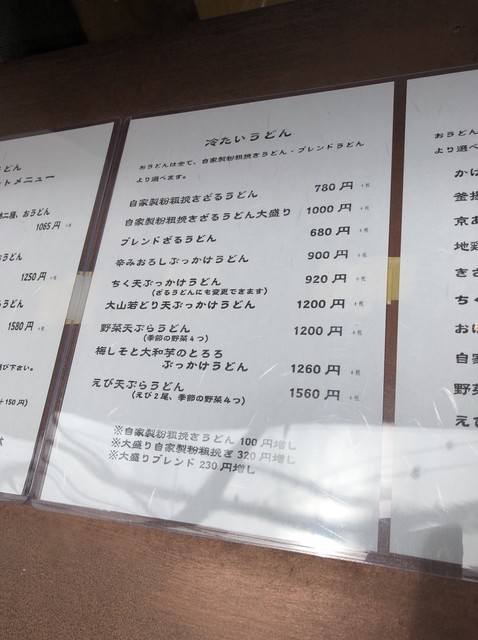 うどん
ットメニュー
おうどん
1065円 +税
うどん
1250円 +税
うどん
1580円 +税
び下さい。
+150円)
冷たいうどん
おうどんは全て、自家製粉粗挽きうどん・ブレンドうどん
より選べます。
自家製粉粗挽きざるうどん 780円 +税
自家製粉粗挽きざるうどん大盛り 1000円 +税
ブレンドざるうどん 680円 +税
辛みおろしぶっかけうどん 900円 +税
ちく天ぶっかけうどん 920円 +税
(ざるうどんにも変更できます)
大山若どり天ぶっかけうどん 1200円 +税
野菜天ぷらうどん 1200円 +税
(季節の野菜4つ)
梅しそと大和芋のとろろ
ぶっかけうどん 1260円 +税
えび天ぷらうどん 1560円 +税
(えび2尾、季節の野菜4つ)
※自家製粉粗挽きうどん 100円増し
※大盛り自家製粉粗挽き 320円増し
※大盛りブレンド 230円増し
おうどん
より選べ
かけ
釜揚
京あ
地鶏
きざ
ちく
おぼ
自家
野菜
えび